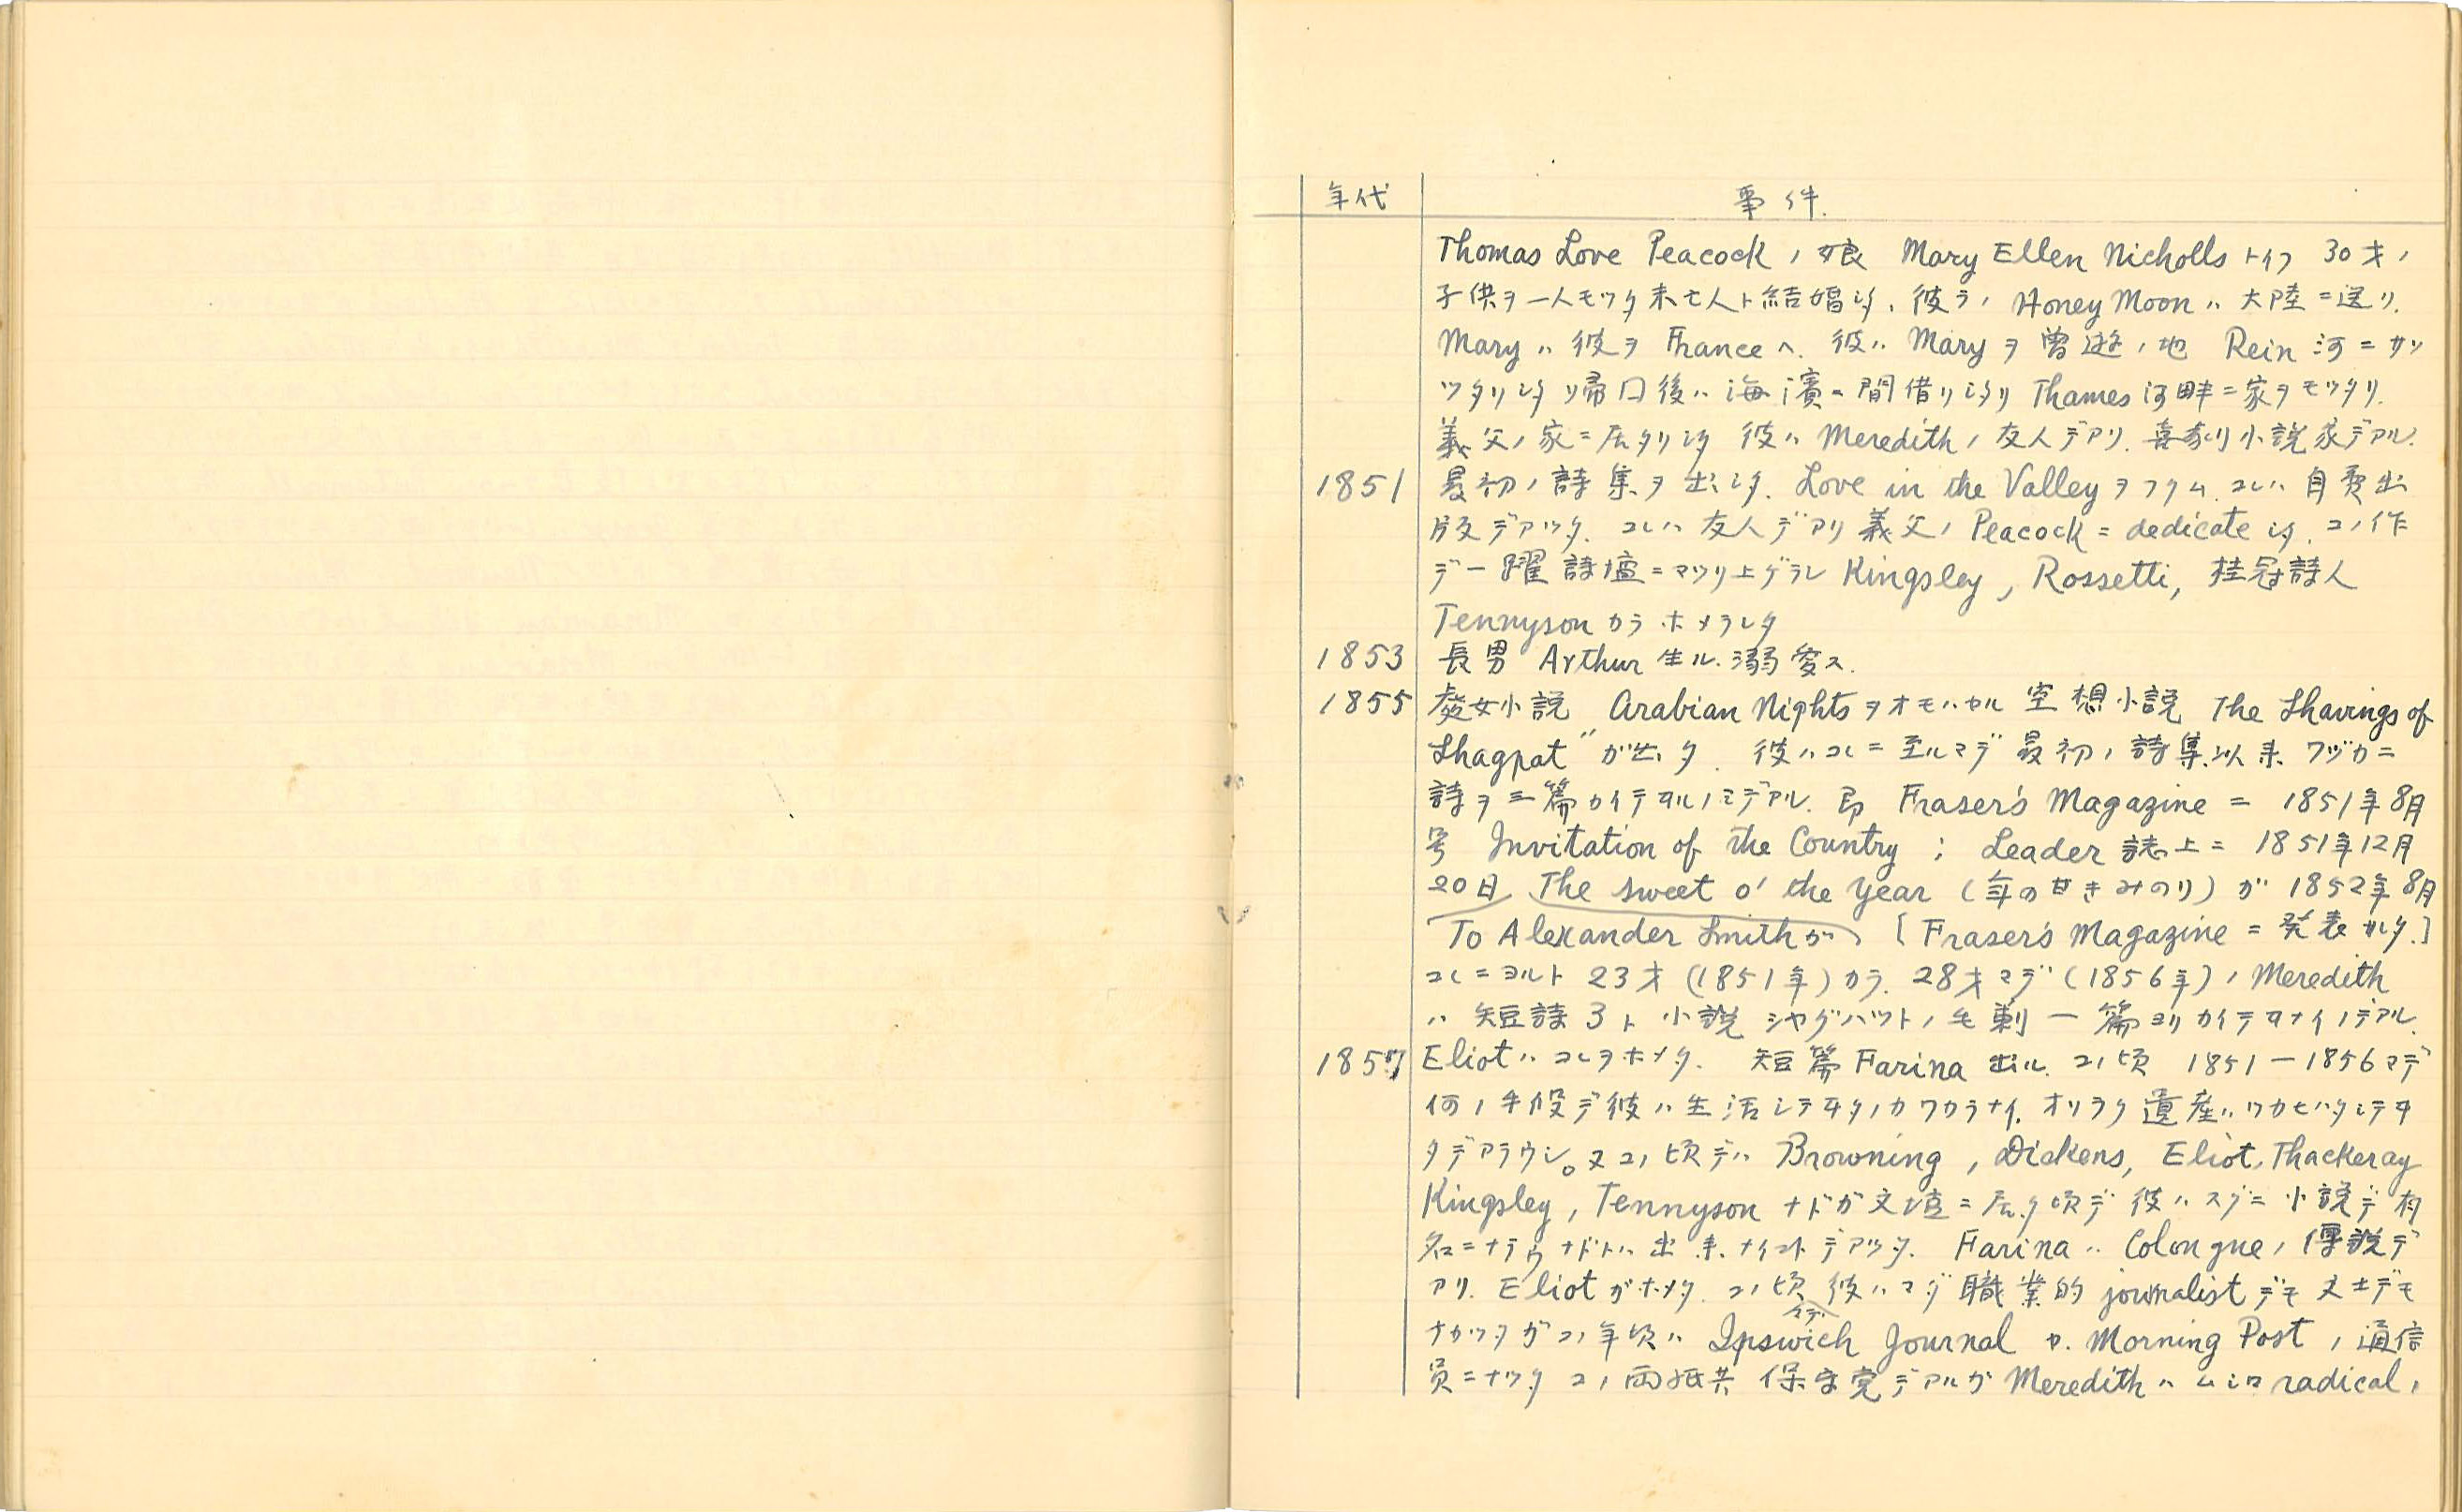 年代 事件.
Thomas Love Peacock ノ娘 Mary Ellen Nicholls トイフ 30才ノ
子供ヲ一人モツタ未亡人ト結婚シタ. 彼ラノ Honey Moon ハ 大陸ニ送リ.
Mary ハ 彼ヲ France ヘ. 彼ハ Mary ヲ 曽遊ノ地 Rein 河ニサソ
ツタリシタ 帰口後ハ 海濱ニ間借リシタリ Thames 河畔ニ家ヲモツタリ.
義父ノ家ニ居タリシタ 彼ハ Meredith ノ友人デアリ. 喜劇小説家デアル.
1851 最初ノ詩集ヲ出シタ. Love in the Valley ヲフクム. コレハ 自費出
版デアツタ. コレハ 友人デアリ 義父ノ Peacock ニ dedicate シタ. コノ作
デ一躍詩壇ニマツリ上ゲラレ Kingsley, Rossetti, 桂冠詩人
Tennyson カラ ホメラレタ
1853 長男 Arthur 生ル. 溺愛ス.
1855 處女小説 Arabian Nights ヲオモハセル 空想小説 The Shavings of
Shagpat" ガ出タ. 彼ハコレニ至ルマデ 最初ノ詩集以来 ワヅカニ
詩ヲ三篇カイテヰルノミデアル. 即 Fraser's Magazine ニ 1851年8月
号 Invitation of the Country ; Leader 誌上ニ 1851年12月
20日 The sweet o' the year (年の甘きみのり) ガ 1852年8月
To Alexander Smith ガ [Fraser's Magazine ニ 発表サレタ.]
コレニヨルト 23才 (1851年) カラ. 28才マデ (1856年) ノ Meredith
ハ 短詩 3ト 小説 シヤグパツトノ毛剃 一篇ヨリカイテヰナイノデアル.
1857 Eliot ハ コレヲホメタ. 短篇 Farina 出ル. コノ頃 1851-1856マデ
何ノ手段デ彼ハ生活シテヰタノカワカラナイ. オソラク遺産ハツカヒハタシテヰ
タデアラウシ。又コノ頃デハ Browning, Dickens, Eliot, Thackeray
Kingsley, Tennyson ナドガ文壇ニ居タ頃デ 彼ハスグニ小説デ有
名ニナラウナドトハ出来ナイコトデアツタ. Farina ハ Colongne ノ傳説デ
アリ. Eliot ガホメタ. コノ頃マデ彼ハマダ職業的 journalist デモ文士デモ
ナカツタガコノ年頃ハ Ipswich Journal ヤ. Morning Post ノ通信
員ニナツタ コノ両紙共 保守党デアルガ Meredith ハ ムシロ radical,